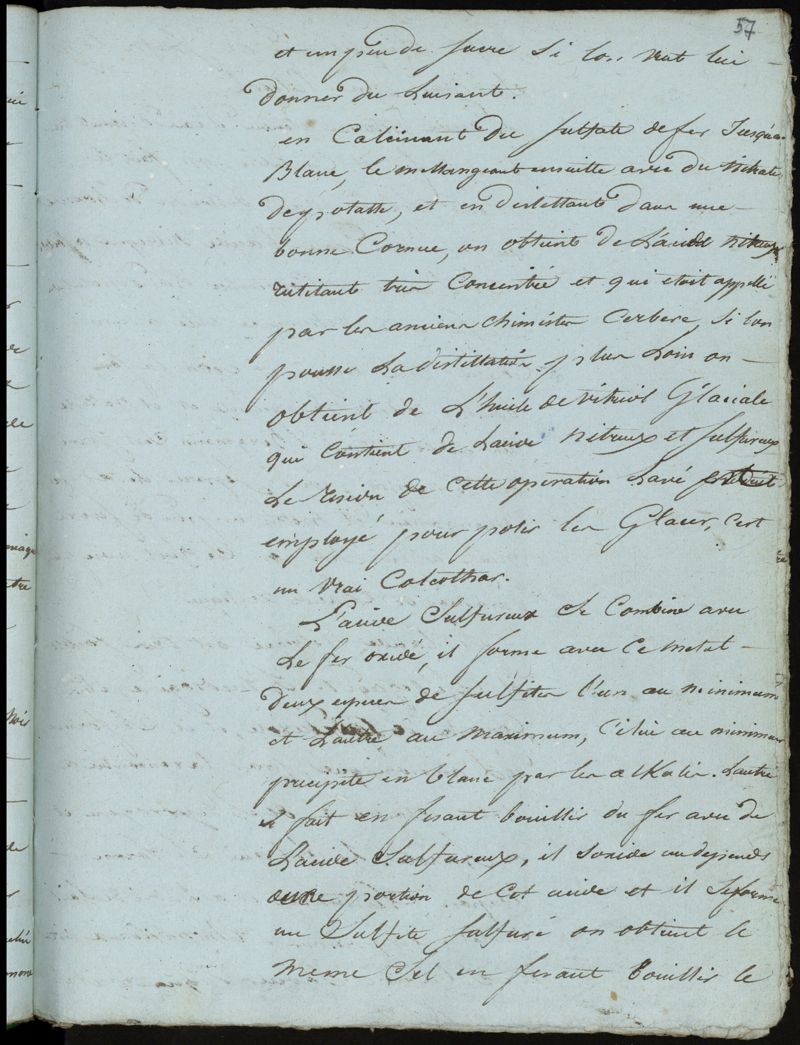 57
et un peu de sucre si lon veut lui
donner du Luisant.
en Calcinant du sulfate de fer Jusqu'au
Blanc, le mellangeant ensuitte avec du nitrate
de potasse, et en distillant dans une
bonne Cornue, on obtient de L'acide nitreux
rutilant très Concentré et qui etoit appellé
par les anciens chimistes Cerbere, si lon
pousse La distillation plus Loin on
obtient de L'huile de vitriol Glaciale
qui Contient de Lacide nitreux et sulfureux
Le residu de cette operation Lavé est
employé pour polir les Glaces, C'est
un vrai Colcothar.
L'acide Sulfureux Se Combine avec
Le fer oxidé, il forme avec Ce metal
deux especes de sulfites l'un au minimum
et L'autre au maximum, Celui au minimum
precipite en blanc par les alkalis. L'autre
se fait en fesant bouillir du fer avec de
Lacide Sulfureux, il soxide au depends
d'une portion de Cet acide et il se forme
un Sulfite sulfuré on obtient le
meme Sel en fesant bouillir le